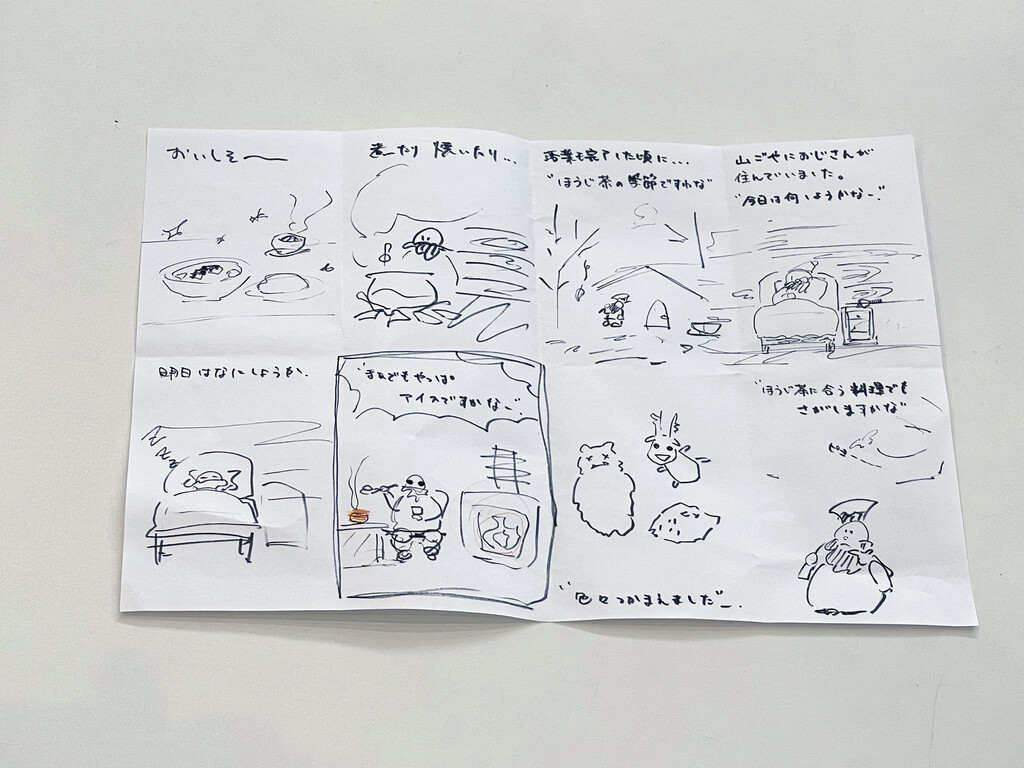 山ごやにおじさんが
住んでいました。
"今日は何しようかなー"
落葉も完了した頃に...
"ほうじ茶の季節ですわな"
煮たり 焼いたり...
おいしそ〜
"ほうじ茶に合う料理でも
さがしますかな"
"色々つかまえました"
"まぁでもやっぱ
アイスですかなー"
明日はなにしようか.
zzz